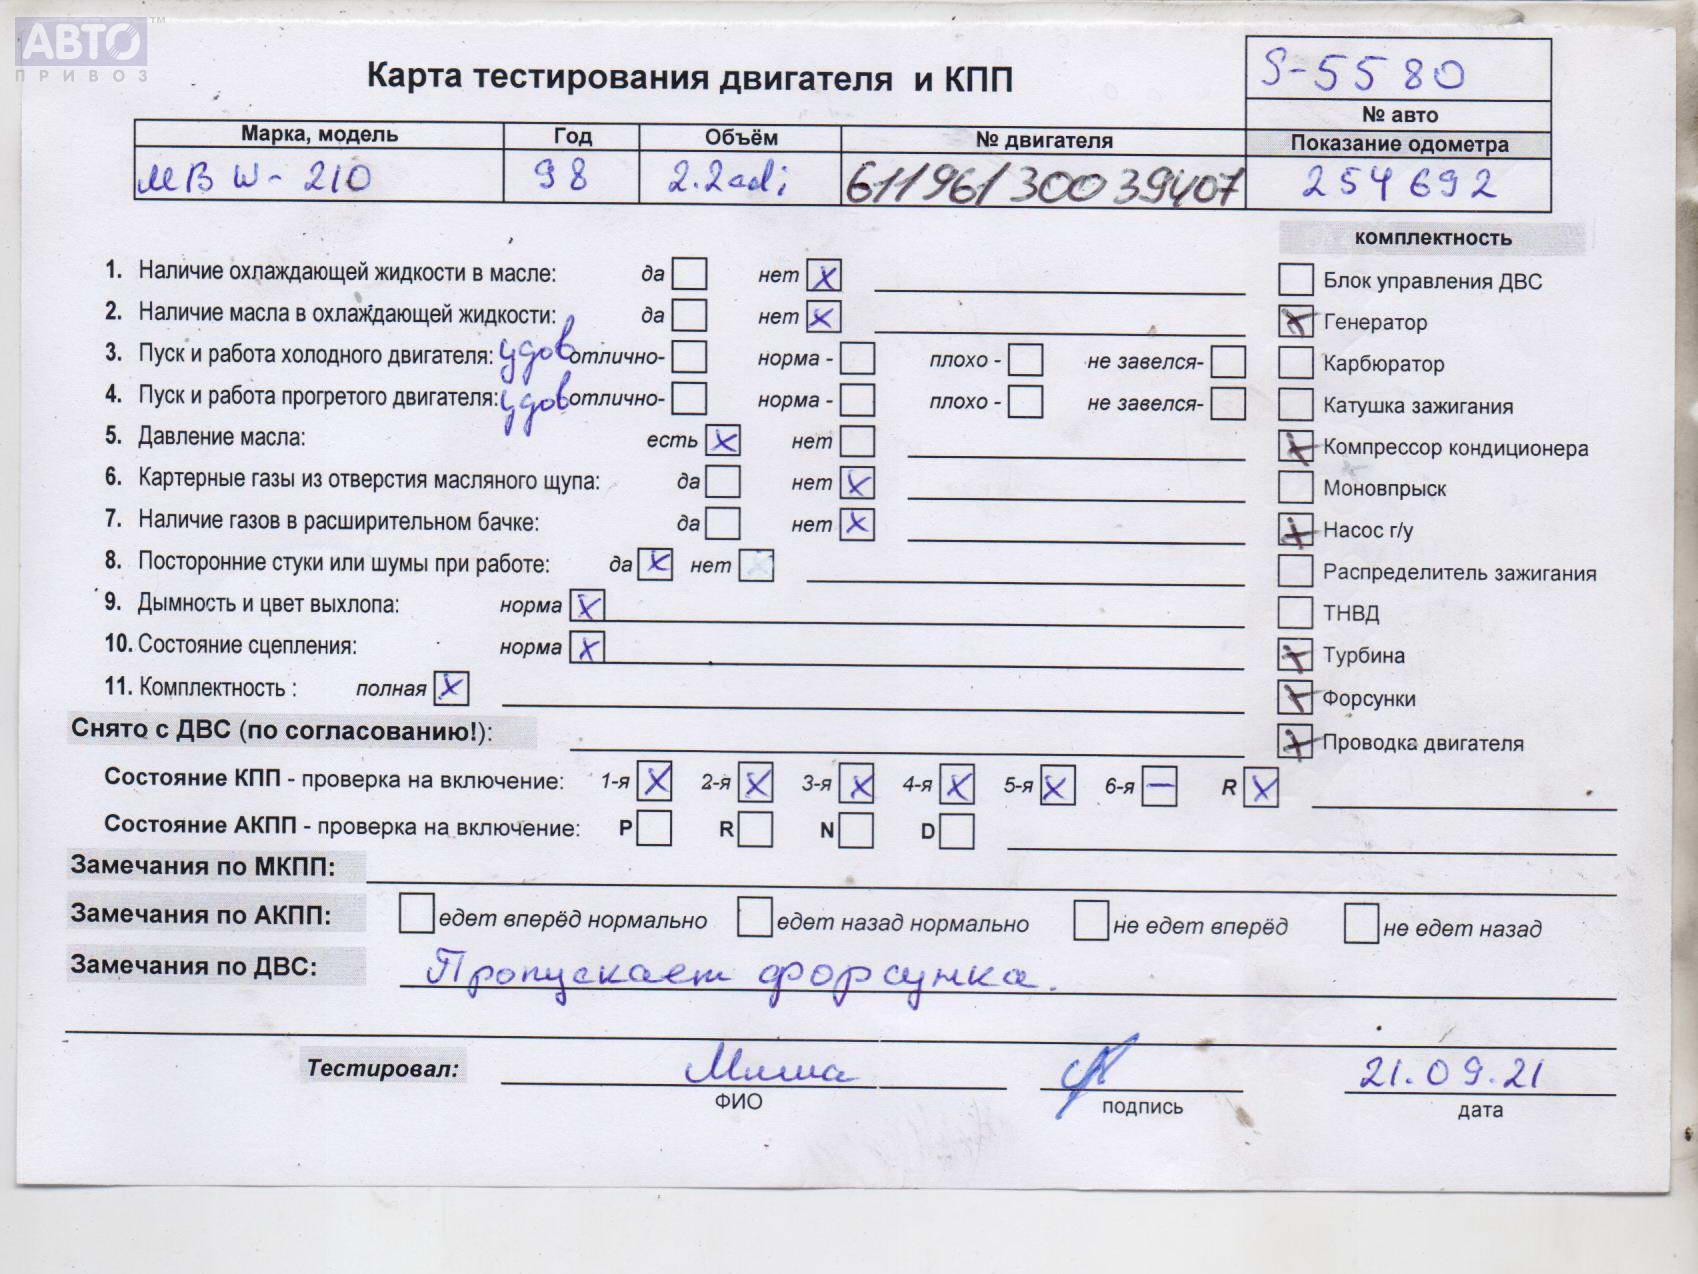 АВТО™
ПРИВОЗ
Карта тестирования двигателя и КПП
S-5580
№ авто
Марка, модель Год Объём № двигателя Показание одометра
МВ W-210 98 2.2cdi 61196130039407 254692
комплектность
1. Наличие охлаждающей жидкости в масле: да нет х
Блок управления ДВС
2. Наличие масла в охлаждающей жидкости: да нет х
х Генератор
3. Пуск и работа холодного двигателя: удов отлично- норма - плохо - не завелся-
Карбюратор
4. Пуск и работа прогретого двигателя: удов отлично- норма - плохо - не завелся-
Катушка зажигания
5. Давление масла: есть х нет
х Компрессор кондиционера
6. Картерные газы из отверстия масляного щупа: да нет х
Моновпрыск
7. Наличие газов в расширительном бачке: да нет х
х Насос г/у
8. Посторонние стуки или шумы при работе: да х нет
Распределитель зажигания
9. Дымность и цвет выхлопа: норма х
ТНВД
10. Состояние сцепления: норма х
х Турбина
11. Комплектность : полная х
х Форсунки
Снято с ДВС (по согласованию!):
х Проводка двигателя
Состояние КПП - проверка на включение: 1-я х 2-я х 3-я х 4-я х 5-я х 6-я — R х
Состояние АКПП - проверка на включение: P R N D
Замечания по МКПП:
Замечания по АКПП: едет вперёд нормально едет назад нормально не едет вперёд не едет назад
Замечания по ДВС: Пропускает форсунка.
Тестировал: Миша 21.09.21
ФИО подпись дата